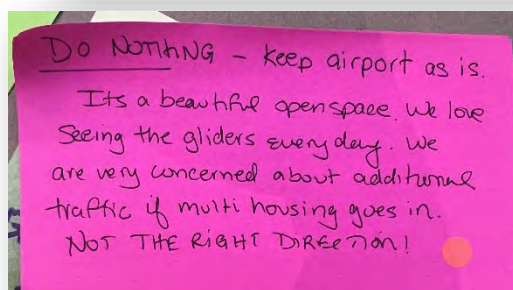 DO NOTHING - Keep airport as is.
Its a beautiful open space. We love
seeing the gliders every day. We
are very concerned about additional
traffic if multi housing goes in.
NOT THE RIGHT DIRECTION!